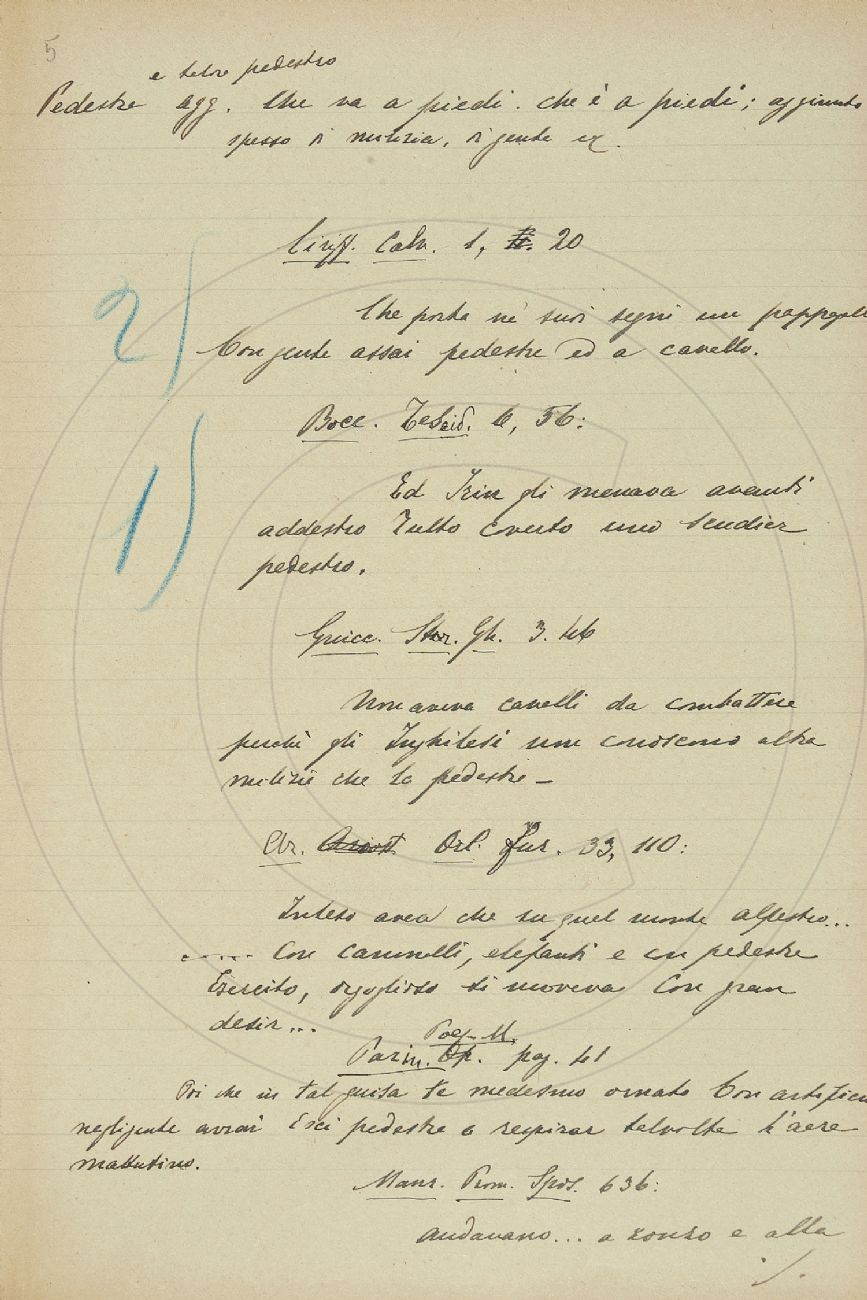 5
e talor pedestro
Pedestre agg. Che va a piedi. che è a piedi; aggiunto
spesso di milizia, di gente ec.
Ciriff. Calv. 1, 20
2)
Che porta ne' suoi segni un pappagallo
Con gente assai pedestre ed a cavallo.
Bocc. Teseid. 6, 56:
1)
Ed Irin gli menava avanti
addestro Tutto coverto uno scudier
pedestro.
Guicc. Stor. Gh. 3. 46
Non aveva cavalli da combattere
perchè gli Inghilesi non conoscono altra
milizie che la pedestre —
Ar. Ariost Orl. Fur. 33, 110:
Inteso avea che su quel monte alpestro...
..... Con cammelli, elefanti e con pedestre
Esercito, orgoglioso si moveva Con gran
desir...
Poeg. M.
Parin. Op. pag. 41
Poi che in tal guisa te medesmo ornato Con artificio
negligente avrai Esci pedestre a respirar talvolta L'aere
mattutino.
Manz. Prom. Spos. 636:
andavano... a zonzo e alla
./.